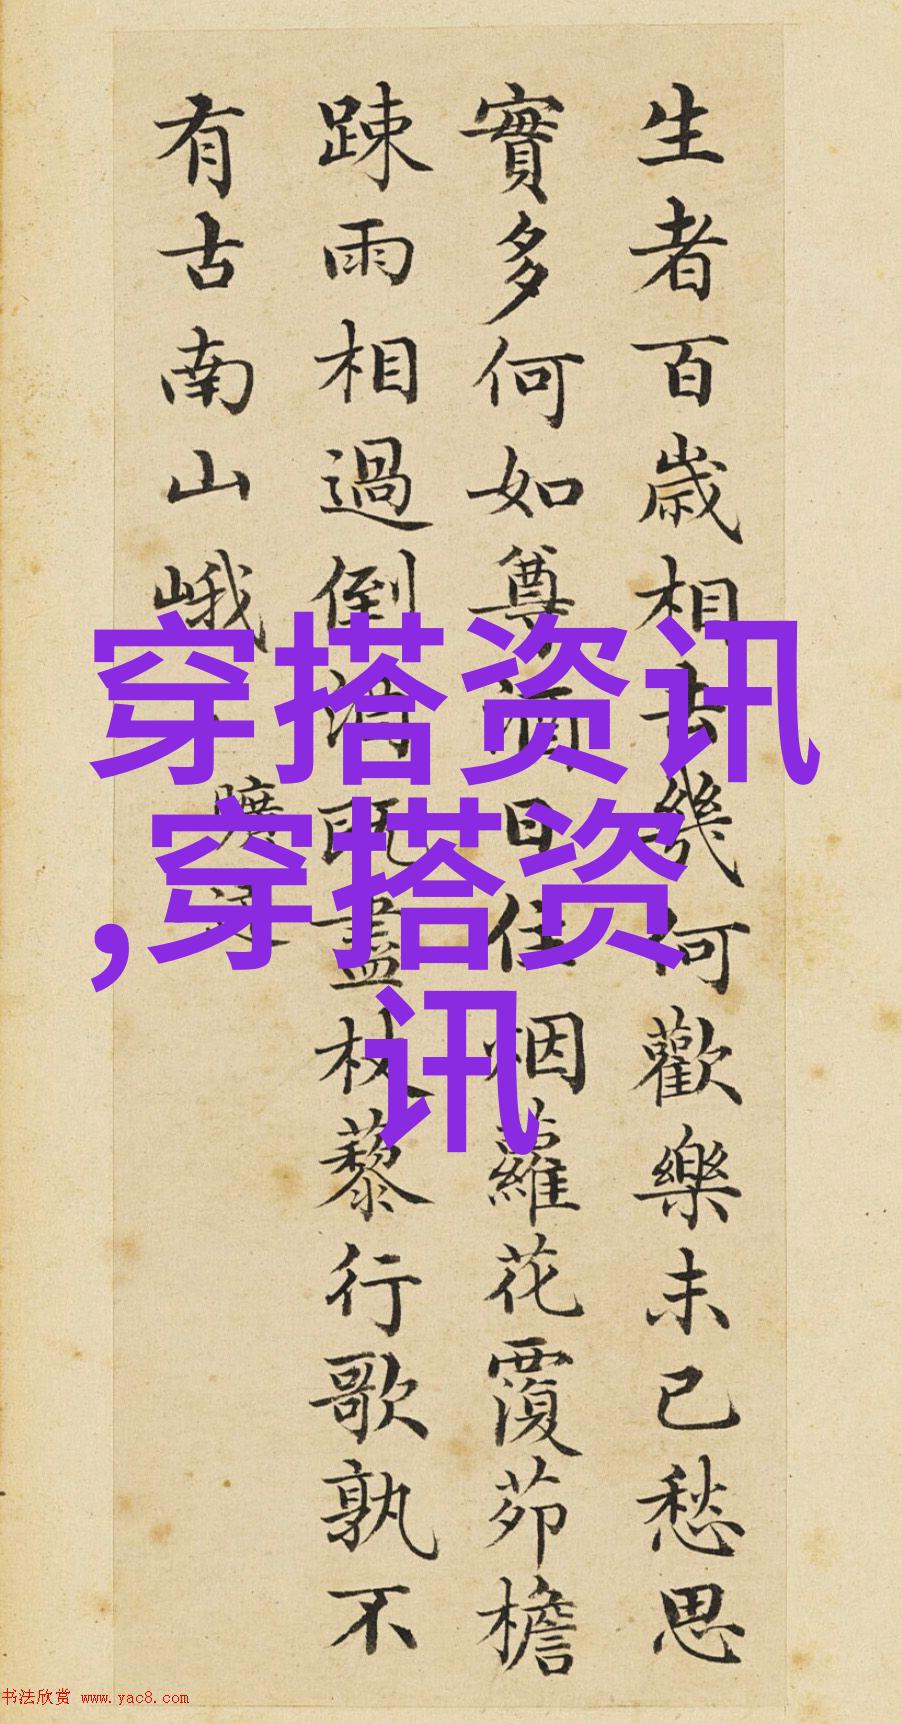 生者百歲相去幾何歡樂未已愁思
實多何如尊酒日往烟蘿花覆茆檐
踈雨相過倒酒既盡杖藜行歌孰不
有古南山峨
穿搭资讯
,穿搭资
讯
书法欣赏 www.yac8.com